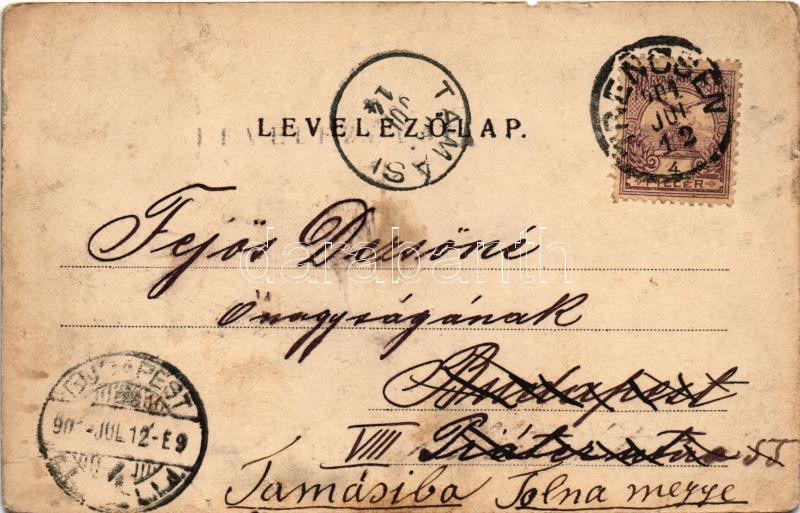 TRENCSÉN
901
JUL
12
4
FILLÉR
TAMÁSI
JUL
14
LEVELEZŐ-LAP.
Fejős Dezsőné
őnagyságának
Budapest
VIII Práter utca 55
Tamásiba Tolna megye
BUDAPEST
901-JUL.12-E9
darabanth